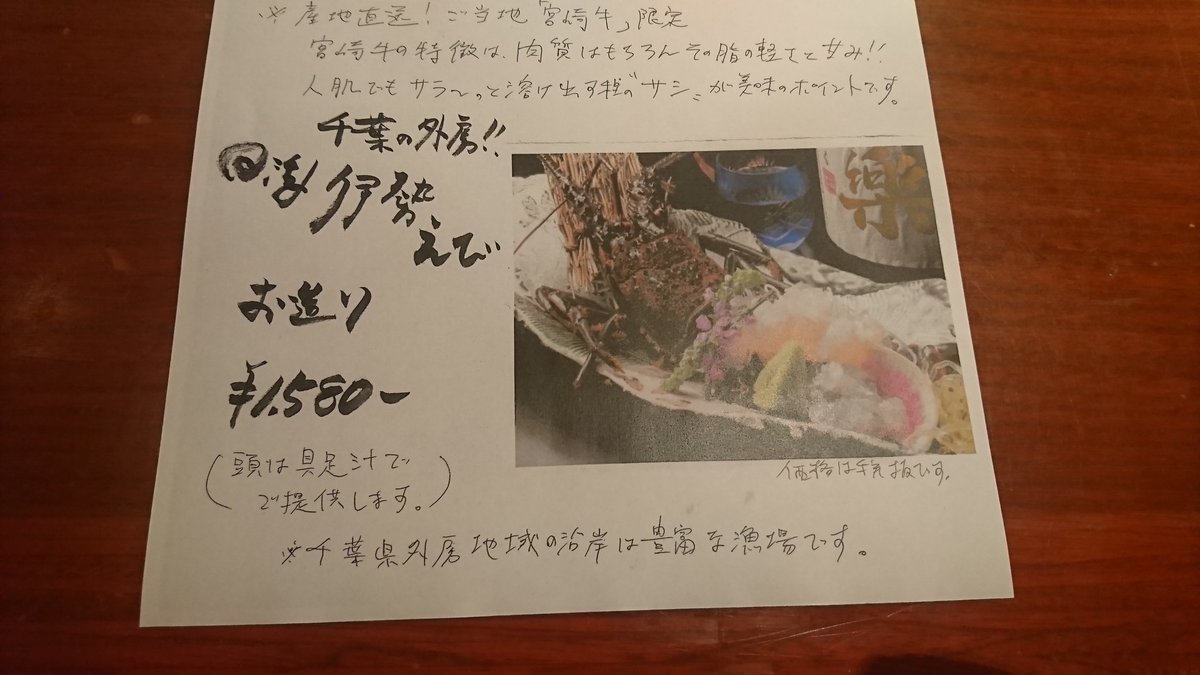 ※産地直送！ご当地「宮崎牛」限定
宮崎牛の特徴は、肉質はもちろんその脂の軽さと甘み!!
人肌でもサラ〜っと溶け出す程の"サシ"が美味のポイントです。
千葉の外房!!
活 伊勢
えび
お造り
¥1,580-
(頭は具足汁で
ご提供します。)
価格は税抜です。
※千葉県外房地域の沿岸は豊富な漁場です。
楽